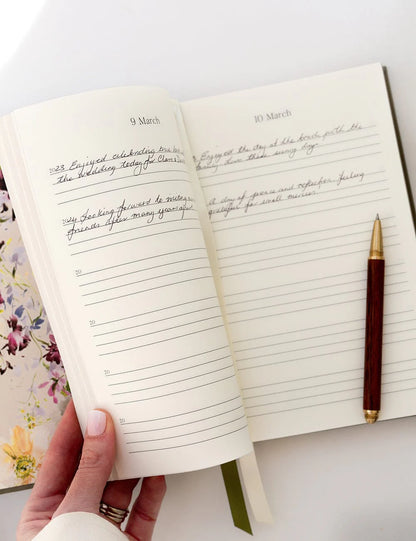 9 March
2023 Enjoyed celebrating the
the wedding today for Clare &
2024 Looking forward to
friends after many years
20
20
20
10 March
Enjoyed the day at the beach with the
family. love these sunny days
A day of peace and reflection feeling
grateful for small